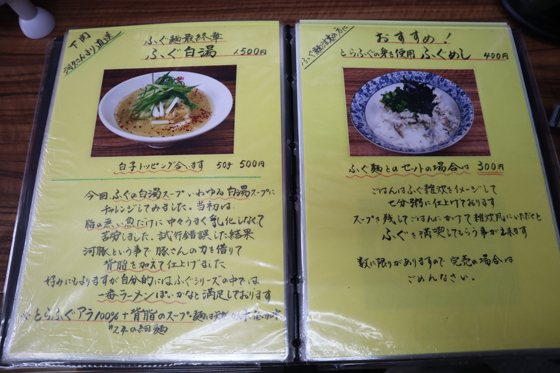 下関
ふぐ麺最終章
ふぐ白湯 1500円
白子トッピング合います 50g 500円
今回、ふぐの白湯スープ、いわゆる白湯スープに
チャレンジしてみました。当初は
脂の無い魚だけに中々うまく乳化しなくて
苦労しました。試行錯誤した結果
河豚という事で豚さんの力を借りて
背脂を加えて仕上げました
好みにもよりますが自分的にはふぐシリーズの中では
一番ラーメンぽいかなと満足しております
とらふぐアラ100%+背脂のスープ 麺は
細麺
おすすめ!
とらふぐの身を使用 ふぐめし 400円
ふぐ麺とのセットの場合は 300円
ごはんはふぐ雑炊をイメージして
七分粥に仕上げております
スープを残してごはんにかけて雑炊風にいただくと
ふぐを満喫してもらう事が出来ます
数に限りがありますので完売の場合は
ごめんなさい。